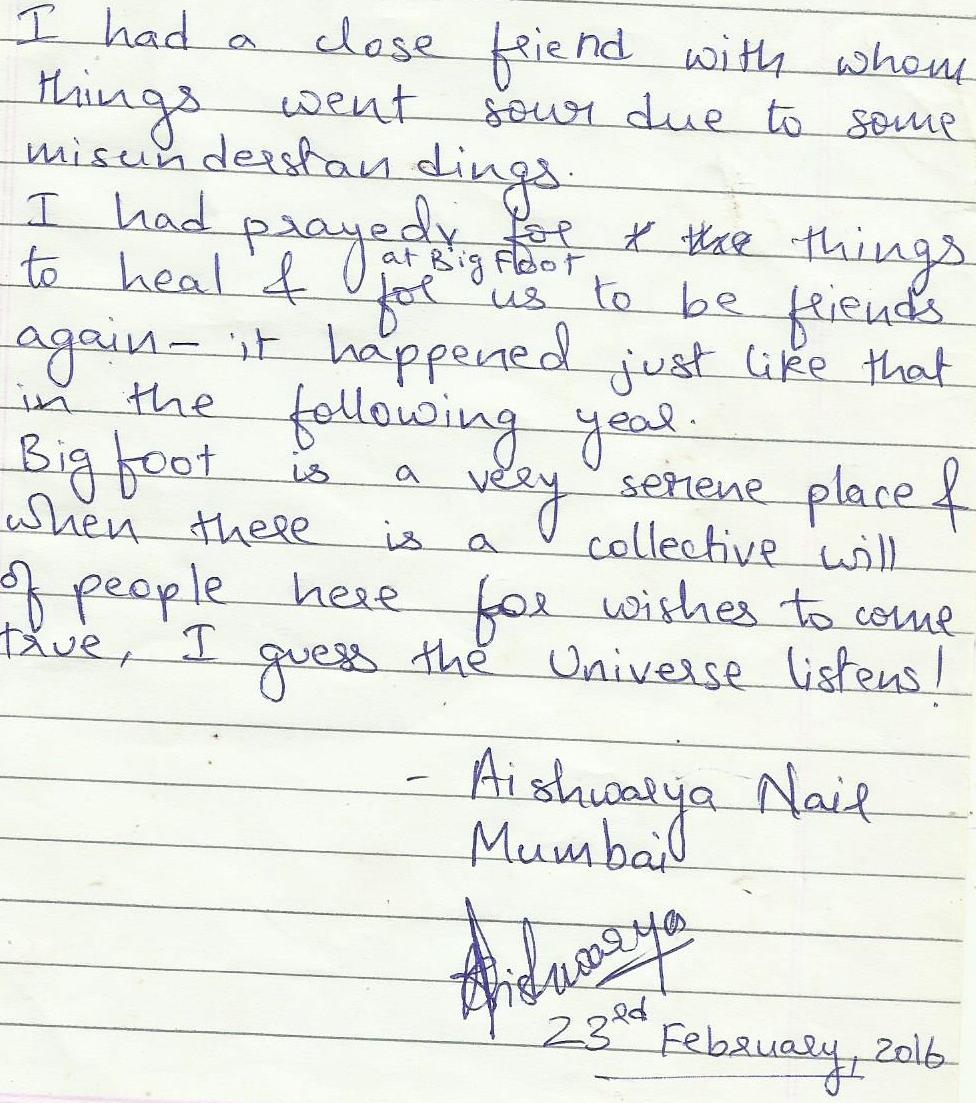 I had a close friend with whom
things went sour due to some
misunderstandings.
I had prayed for things
at Big Foot
to heal & for us to be friends
again - it happened just like that
in the following year.
Big foot is a very serene place &
when there is a collective will
of people here for wishes to come
true, I guess the Universe listens!
- Aishwarya Nair
Mumbai
Aishwarya
23rd February, 2016